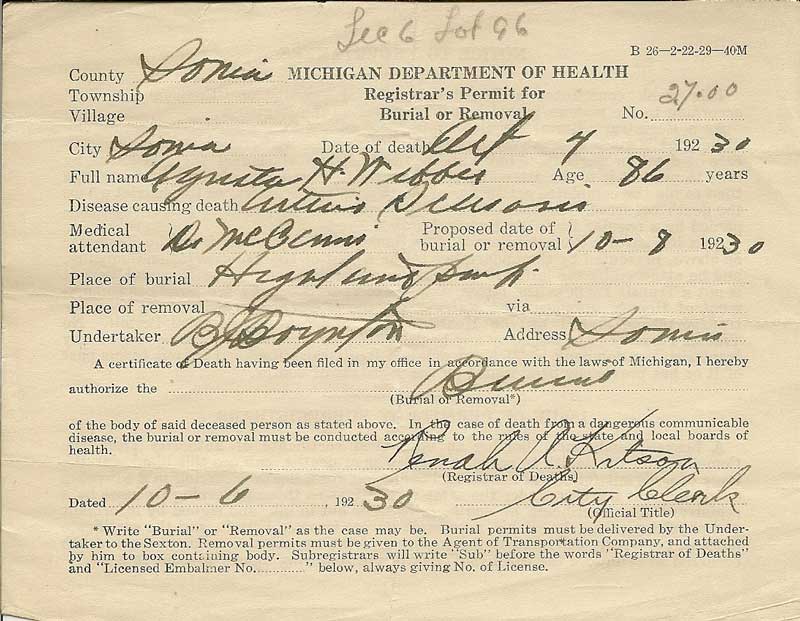 Sec 6 Lot 96
B 26—2-22-29—40-M
County Ionia MICHIGAN DEPARTMENT OF HEALTH
Township Registrar's Permit for
Village Burial or Removal No. 27.00
City Ionia Date of death Oct 4 192 30
Full name H. Webber Age 86 years
Disease causing death Arterio Sclerosis
Medical attendant Dr McGinnis Proposed date of burial or removal 10-8 192 30
Place of burial Highland Park
Place of removal via
Undertaker Boynton Address Ionia
A certificate of Death having been filed in my office in accordance with the laws of Michigan, I hereby
authorize the Burial
(Burial or Removal*)
of the body of said deceased person as stated above. In the case of death from a dangerous communicable
disease, the burial or removal must be conducted according to the rules of the state and local boards of
health.
A. Kitson
(Registrar of Deaths)
Dated 10-6 192 30 City Clerk
(Official Title)
* Write "Burial" or "Removal" as the case may be. Burial permits must be delivered by the Under-
taker to the Sexton. Removal permits must be given to the Agent of Transportation Company, and attached
by him to box containing body. Subregistrars will write "Sub" before the words "Registrar of Deaths"
and "Licensed Embalmer No............" below, always giving No. of License.